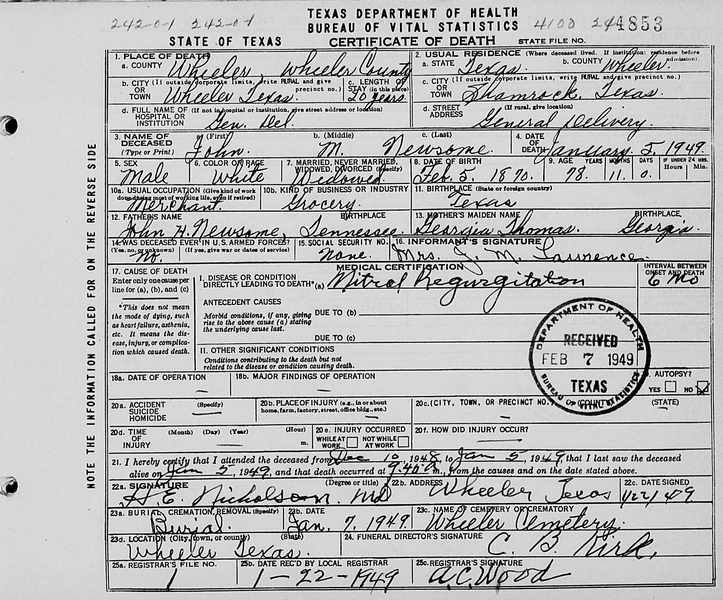 TEXAS DEPARTMENT OF HEALTH
BUREAU OF VITAL STATISTICS
242-0-1 242-0-1
STATE OF TEXAS CERTIFICATE OF DEATH STATE FILE NO. 4853
NOTE THE INFORMATION CALLED FOR ON THE REVERSE SIDE
1. PLACE OF DEATH
a. COUNTY Wheeler Wheeler County
2. USUAL RESIDENCE (Where deceased lived. If institution: residence before admission)
a. STATE Texas b. COUNTY Wheeler
b. CITY (If outside corporate limits, write RURAL and give precinct no.) OR TOWN Wheeler Texas
c. LENGTH OF STAY (in this place) 20 years
c. CITY (If outside corporate limits, write RURAL and give precinct no.) OR TOWN Shamrock, Texas
d. FULL NAME OF HOSPITAL OR INSTITUTION (If not in hospital or institution, give street address or location) Gen. Del.
d. STREET ADDRESS (If rural, give location) General Delivery
3. NAME OF DECEASED (Type or Print)
a. (First) John b. (Middle) M. c. (Last) Newsome
4. DATE OF DEATH January 5, 1949
5. SEX Male
6. COLOR OR RACE White
7. MARRIED, NEVER MARRIED, WIDOWED, DIVORCED (Specify) Widowed
8. DATE OF BIRTH Feb. 5, 1870.
9. AGE YEARS 78. MONTHS 11. DAYS 0. IF UNDER 24 HRS. Hours Min.
10a. USUAL OCCUPATION (Give kind of work done during most of working life, even if retired) Merchant
10b. KIND OF BUSINESS OR INDUSTRY Grocery
11. BIRTHPLACE (State or foreign country) Texas
12. FATHER'S NAME BIRTHPLACE
John H. Newsome, Tennessee
13. MOTHER'S MAIDEN NAME BIRTHPLACE
Georgia Thomas. Georgia
14. WAS DECEASED EVER IN U.S. ARMED FORCES? (Yes, no, or unknown) (If yes, give war or dates of service) No.
15. SOCIAL SECURITY NO. None.
16. INFORMANT'S SIGNATURE Mrs. J. M. Lawrence
17. CAUSE OF DEATH
Enter only one cause per line for (a), (b), and (c)
*This does not mean the mode of dying, such as heart failure, asthenia, etc. It means the disease, injury, or complication which caused death.
MEDICAL CERTIFICATION
I. DISEASE OR CONDITION DIRECTLY LEADING TO DEATH* (a) Mitral Regurgitation
INTERVAL BETWEEN ONSET AND DEATH 6 Mo
ANTECEDENT CAUSES
Morbid conditions, if any, giving rise to the above cause (a) stating the underlying cause last.
DUE TO (b)
DUE TO (c)
II. OTHER SIGNIFICANT CONDITIONS
Conditions contributing to the death but not related to the disease or condition causing death.
DEPARTMENT OF HEALTH
RECEIVED
FEB 7 1949
TEXAS
BUREAU OF VITAL STATISTICS
18a. DATE OF OPERATION
18b. MAJOR FINDINGS OF OPERATION
AUTOPSY? YES NO
20a. ACCIDENT SUICIDE HOMICIDE (Specify)
20b. PLACE OF INJURY (e.g., in or about home, farm, factory, street, office bldg., etc.)
20c. (CITY, TOWN, OR PRECINCT NO.) (COUNTY) (STATE)
20d. TIME OF INJURY (Month) (Day) (Year) (Hour) m.
20e. INJURY OCCURRED WHILE AT WORK NOT WHILE AT WORK
20f. HOW DID INJURY OCCUR?
21. I hereby certify that I attended the deceased from Dec 10, 1948, to Jan 5, 1949, that I last saw the deceased
alive on Jan 5, 1949, and that death occurred at 9:40 m., from the causes and on the date stated above.
22a. SIGNATURE (Degree or title) H. E. Nicholson. MD
22b. ADDRESS Wheeler Texas
22c. DATE SIGNED 1/22/49
23a. BURIAL, CREMATION, REMOVAL (Specify) Burial.
23b. DATE Jan. 7, 1949
23c. NAME OF CEMETERY OR CREMATORY Wheeler Cemetery.
23d. LOCATION (City, town, or county) (State) Wheeler Texas.
24. FUNERAL DIRECTOR'S SIGNATURE C. B. Kirk.
25a. REGISTRAR'S FILE NO. 1
25b. DATE REC'D BY LOCAL REGISTRAR 1-22-1949
25c. REGISTRAR'S SIGNATURE A.C. Wood